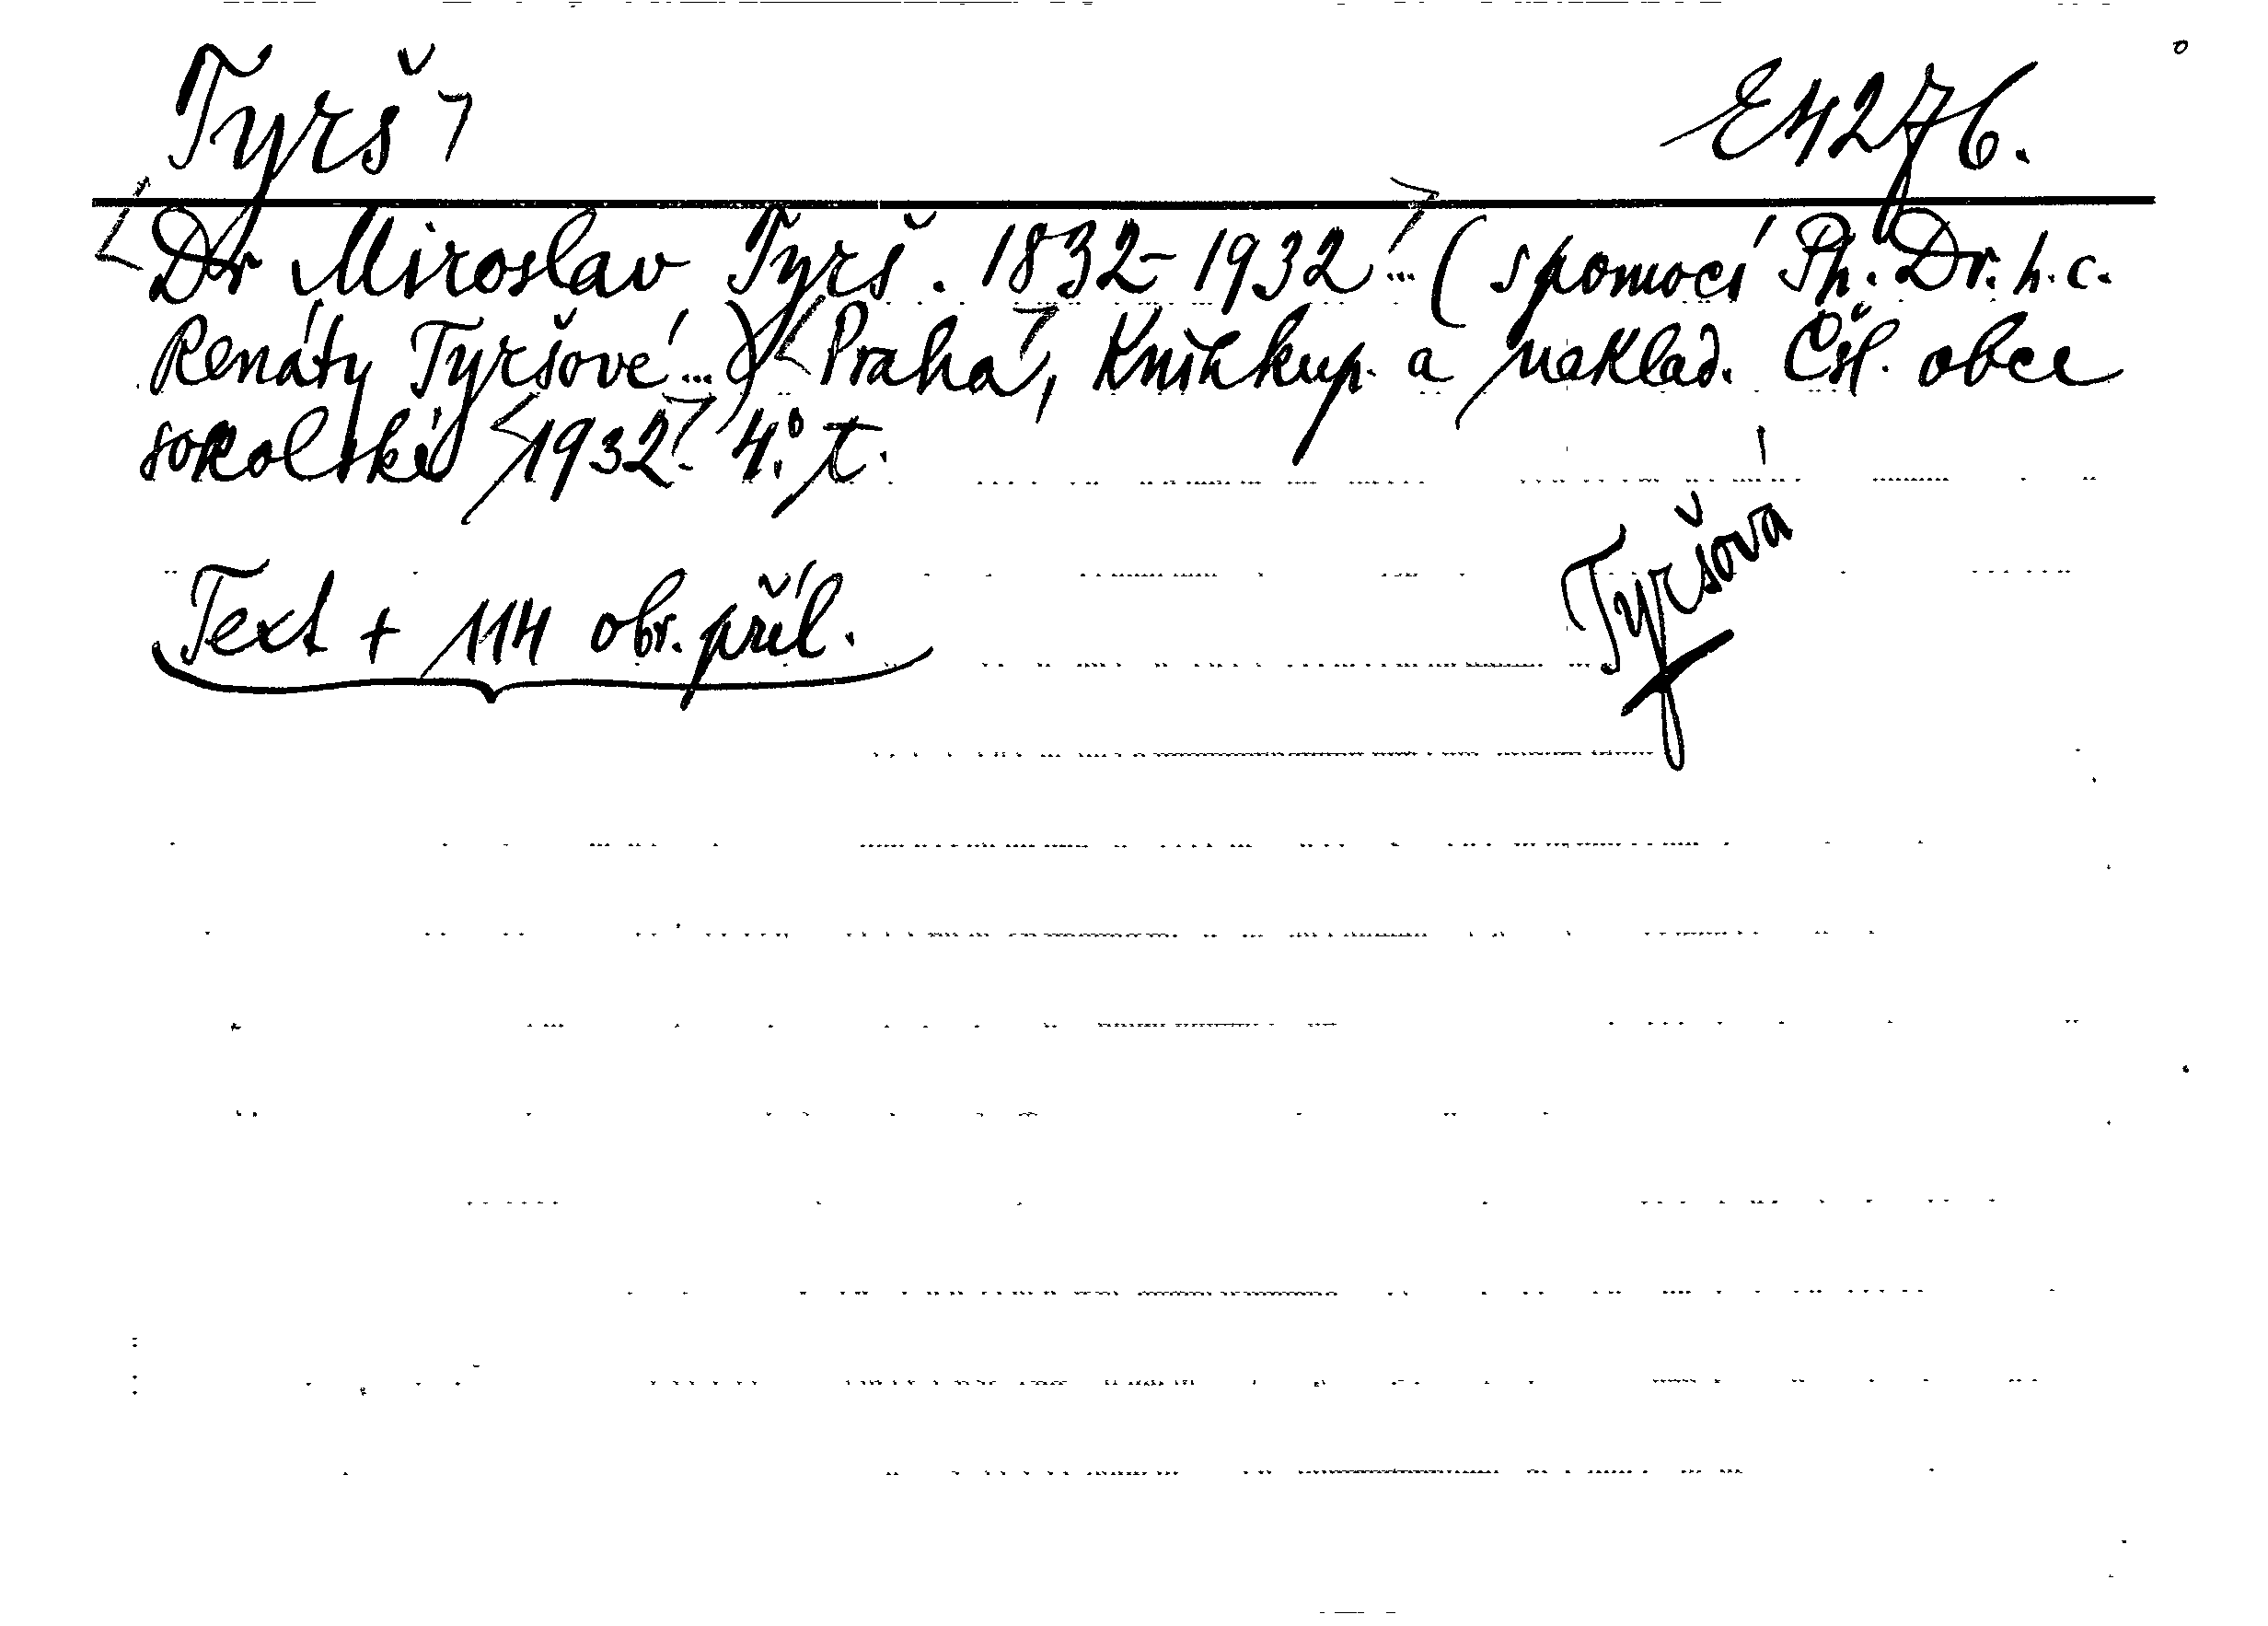 Tyrš
E4276.
Dr Miroslav Tyrš. 1832-1932... (s pomocí Ph. Dr. h. c.
Renáty Tyršové...) Praha, Knihkup. a naklad. Čsl. obce
sokolské 1932. 4.° t.
Text + 114 obr. příl.
Tyršová